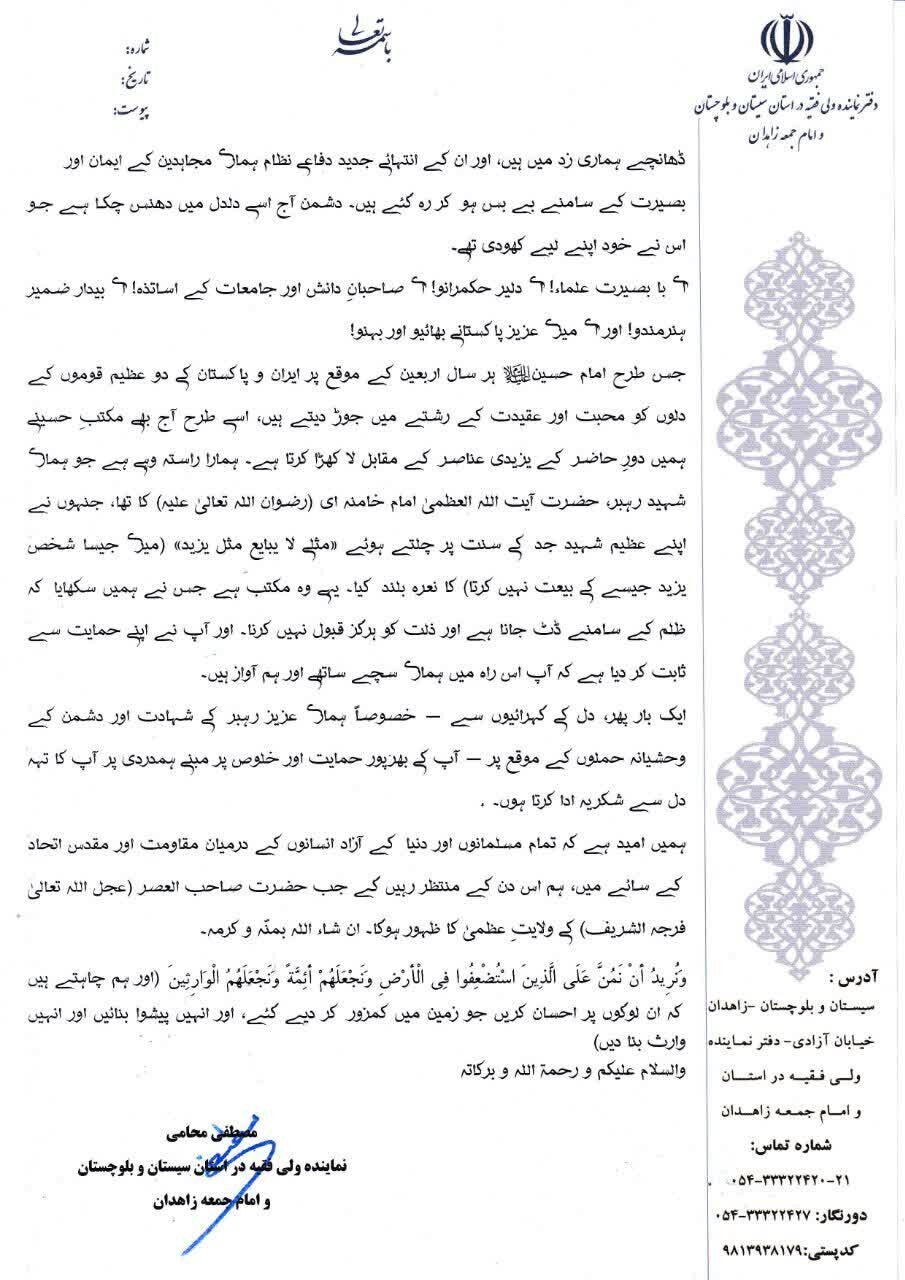 باسمه تعالی
جمهوری اسلامی ایران
دفتر نماینده ولی فقیه در استان سیستان و بلوچستان
و امام جمعه زاهدان
شماره:
تاریخ:
پیوست:
ڈھانچے ہماری زد میں ہیں، اور ان کے انتہائے جدید دفاعے نظام ہمارے مجاہدین کے ایمان اور
بصیرت کے سامنے بے بس ہو کر رہ گئے ہیں۔ دشمن آج اسے دلدل میں دھنس چکا ہے جو
اس نے خود اپنے لیے کھودی تھے۔
اے با بصیرت علماء! اے دلیر حکمرانو! اے صاحبانِ دانش اور جامعات کے اساتذہ! اے بیدار ضمیر
ہنرمندو! اور اے میرے عزیز پاکستانے بھائیو اور بہنو!
جس طرح امام حسین علیہ السلام ہر سال اربعین کے موقع پر ایران و پاکستان کے دو عظیم قوموں کے
دلوں کو محبت اور عقیدت کے رشتے میں جوڑ دیتے ہیں، اسے طرح آج بھے مکتبِ حسینے
ہمیں دورِ حاضر کے یزیدی عناصر کے مقابل لا کھڑا کرتا ہے۔ ہمارا راستہ وہے ہے جو ہمارے
شہید رہبر، حضرت آیت اللہ العظمیٰ امام خامنہ ای (رضوان اللہ تعالیٰ علیہ) کا تھا، جنہوں نے
اپنے عظیم شہید جد کے سنت پر چلتے ہوئے «مثلے لا یبایع مثل یزید» (میرے جیسا شخص
یزید جیسے کے بیعت نہیں کرتا) کا نعرہ بلند کیا۔ یہے وہ مکتب ہے جس نے ہمیں سکھایا کہ
ظلم کے سامنے ڈٹ جانا ہے اور ذلت کو ہرگز قبول نہیں کرنا۔ اور آپ نے اپنے حمایت سے
ثابت کر دیا ہے کہ آپ اس راہ میں ہمارے سچے ساتھے اور ہم آواز ہیں۔
ایک بار پھر، دل کے گہرائیوں سے – خصوصاً ہمارے عزیز رہبر کے شہادت اور دشمن کے
وحشیانہ حملوں کے موقع پر – آپ کے بھرپور حمایت اور خلوص پر مبنے ہمدردی پر آپ کا تہہ
دل سے شکریہ ادا کرتا ہوں۔ .
ہمیں امید ہے کہ تمام مسلمانوں اور دنیا کے آزاد انسانوں کے درمیان مقاومت اور مقدس اتحاد
کے سائے میں، ہم اس دن کے منتظر رہیں گے جب حضرت صاحب العصر (عجل اللہ تعالیٰ
فرجہ الشریف) کے ولایتِ عظمیٰ کا ظہور ہوگا۔ ان شاء اللہ بمنّہ و کرمہ۔
وَنُرِيدُ أَنْ نَمُنَّ عَلَى الَّذِينَ اسْتُضْعِفُوا فِي الْأَرْضِ وَنَجْعَلَهُمْ أَئِمَّةً وَنَجْعَلَهُمُ الْوَارِثِينَ (اور ہم چاہتے ہیں
کہ ان لوگوں پر احسان کریں جو زمین میں کمزور کر دیے گئے، اور انہیں پیشوا بنائیں اور انہیں
وارث بنا دیں)
والسلام علیکم و رحمة اللہ و برکاتہ
مصطفی محامی
نماینده ولی فقیه در استان سیستان و بلوچستان
و امام جمعه زاهدان
آدرس :
سیستان و بلوچستان -زاهدان
خیابان آزادی- دفتر نماینده
ولی فقیه در استان
و امام جمعه زاهدان
شماره تماس:
۰۵۴-۳۳۲۲۲۴۲۰-۲۱
دورنگار: ۰۵۴-۳۳۲۲۲۴۲۷
کدپستی:۹۸۱۳۹۳۸۱۷۹